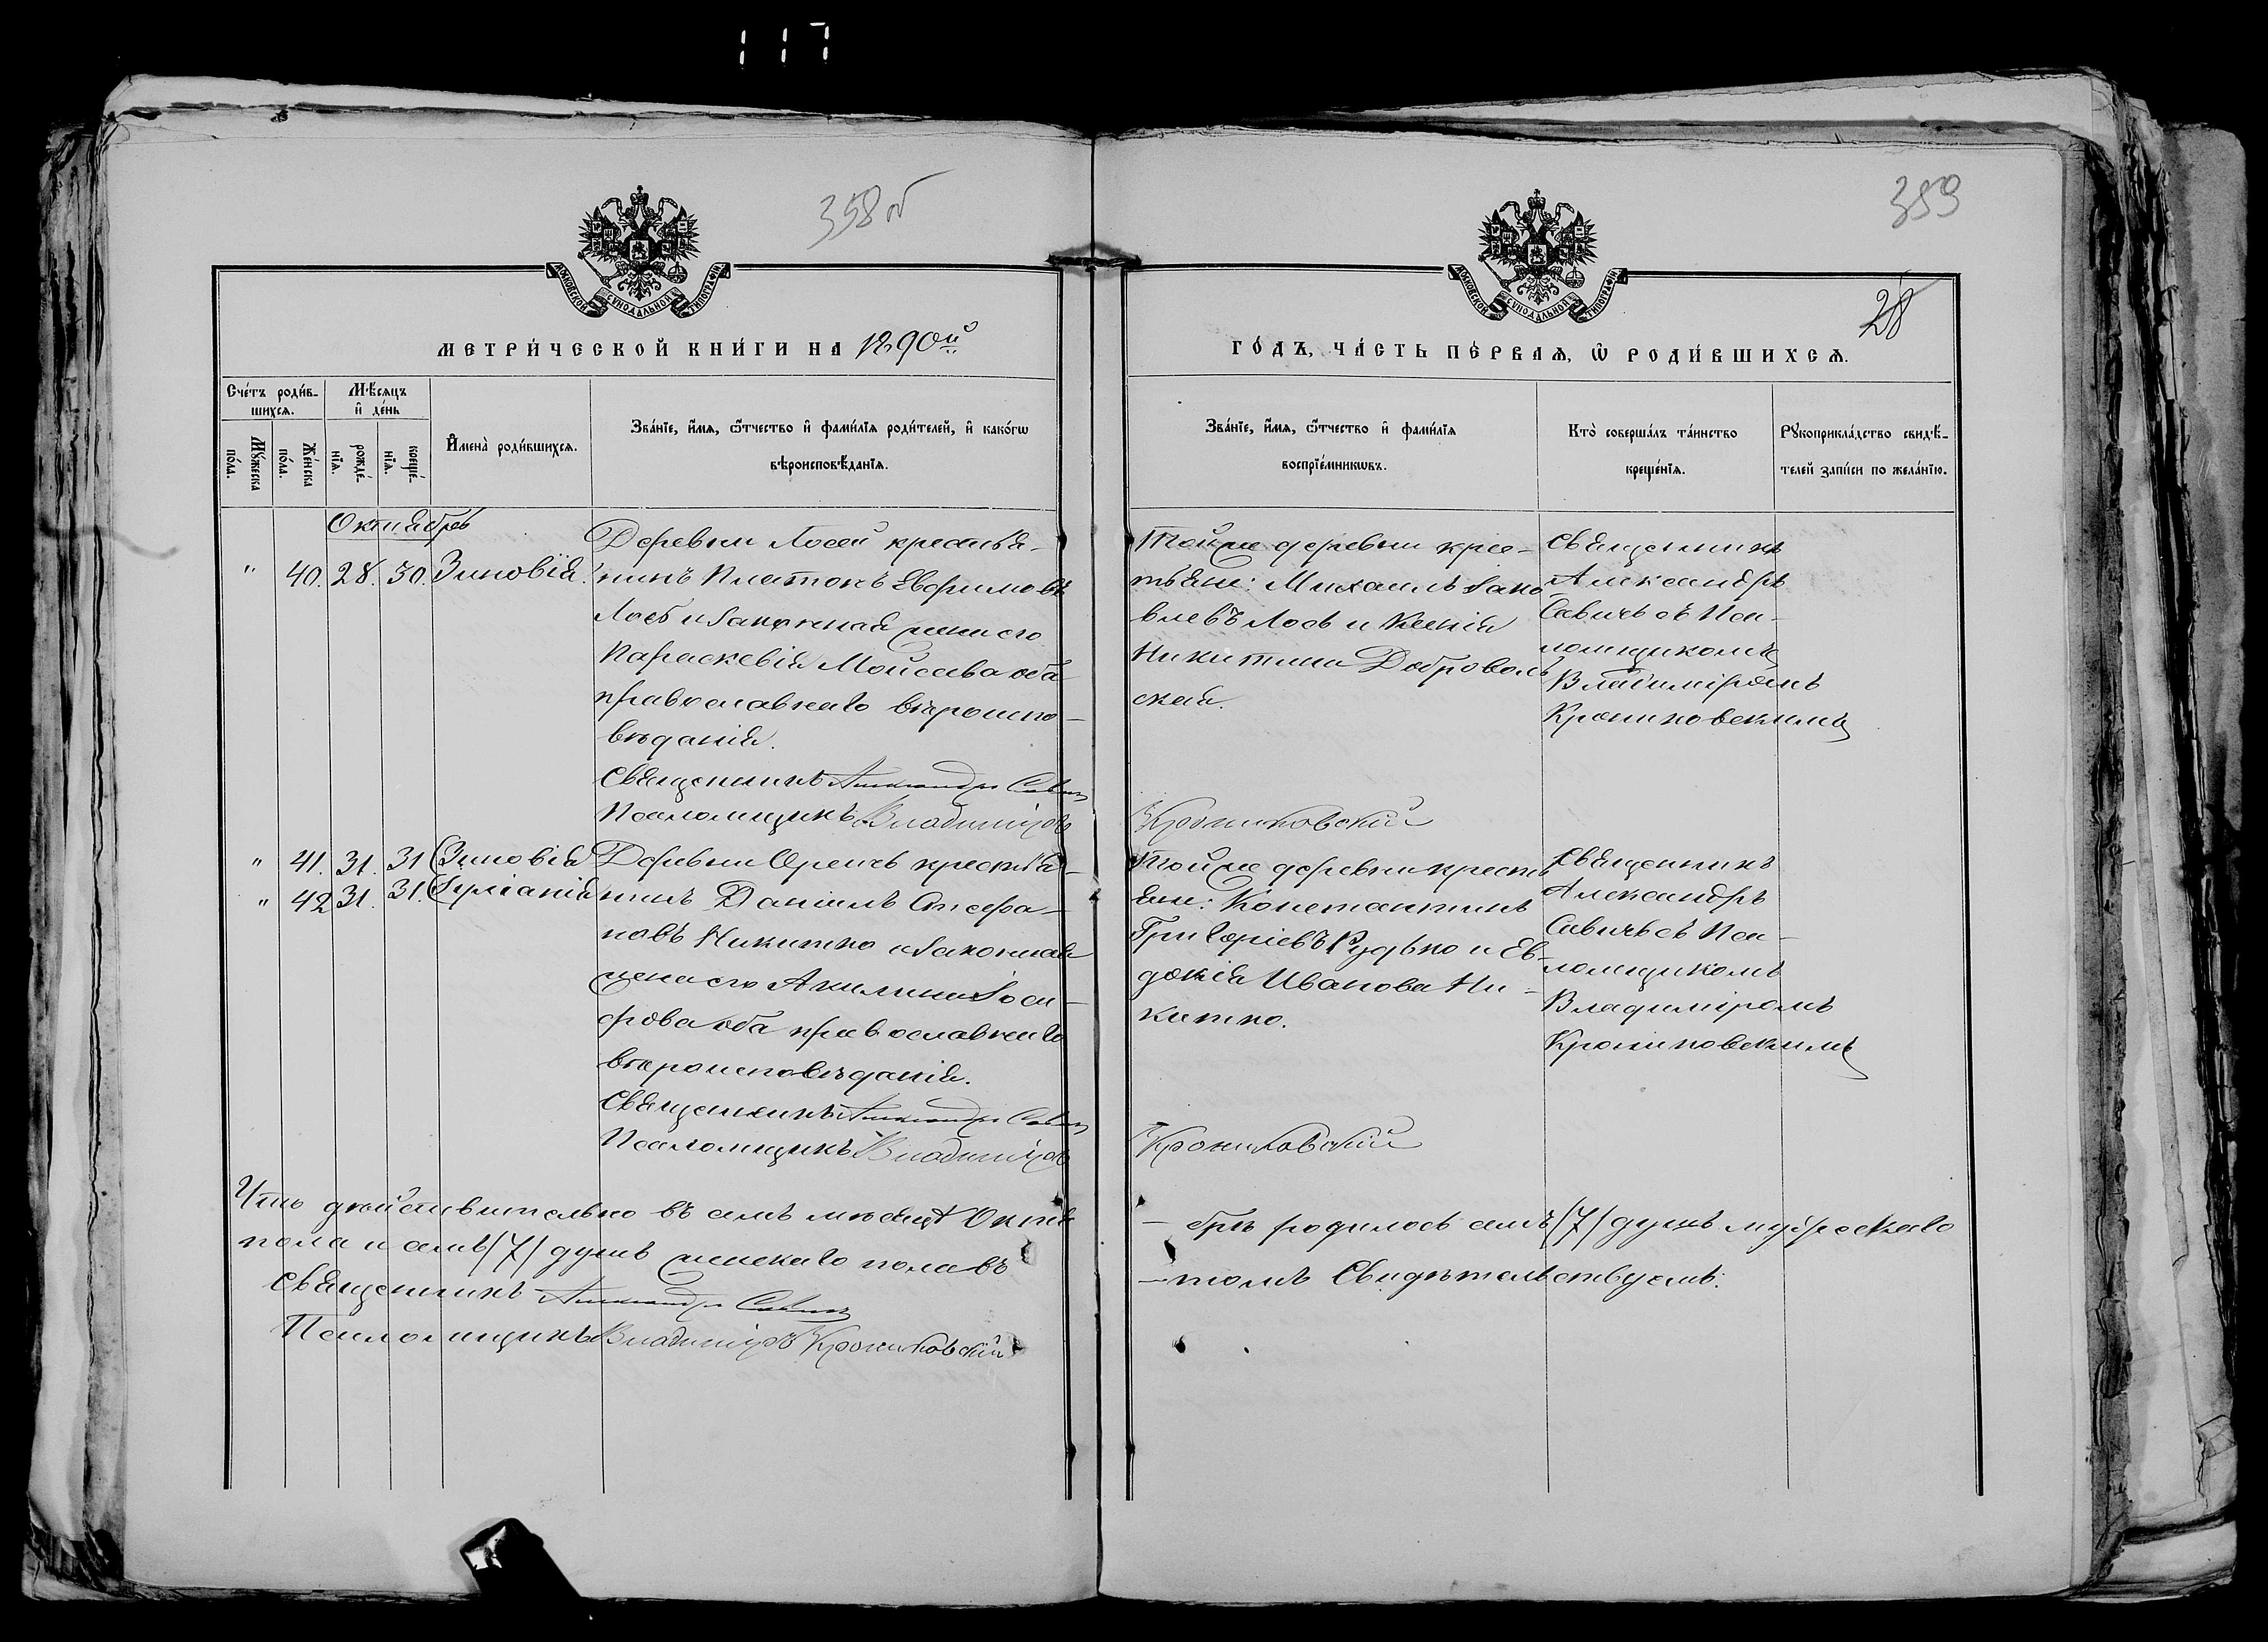 117
358об
359
28
МОСКОВСКОЙ СУНОДАЛЬНОЙ ТИПОГРАФІИ
МЕТРИ́ЧЕСКОЙ КНИ́ГИ НА 1890ый
Сче́тъ роди́в-
шихсѧ.
Мѣ́сѧцъ
и҆ де́нь
Мꙋ́жеска
по́ла.
Же́нска
по́ла.
рожде́-
нїѧ.
креще́-
нїѧ.
И҆мена̀ роди́вшихсѧ.
Зва́нїе, и҆́мѧ, ѻ҆́тчество и҆ фами́лїѧ роди́телей, и҆ како́гѡ
вѣроисповѣ́данїѧ.
Октябрь
" 40. 28. 30. Зиновія.
Деревни Лосей крестья-
нинъ Платонъ Евфимовъ
Лось и законная жена его
Параскевія Мойсеева оба
православнаго вѣроиспо-
вѣданія.
Священникъ Александръ Савичъ
Псаломщикъ Владиміръ
" 41. 31. 31. Зиновія
" 42 31. 31.
Деревни Орепичъ крестья-
нинъ Даніилъ
новъ Никитко и законная
жена его Акилина Іоси-
фова оба православнаго
вѣроисповѣданія.
Священникъ Александръ Савичъ
Псаломщикъ Владиміръ
Что дѣйствительно въ семъ мѣсяцѣ Октя
пола и семь /7/ душъ женскаго пола въ
Священникъ Александръ Савичъ
Псаломщикъ Владиміръ Крониковскій
МОСКОВСКОЙ СУНОДАЛЬНОЙ ТИПОГРАФІИ
ГО́ДЪ, ЧА́СТЬ ПЕ́РВАѦ, Ѡ҆ РОДИ́ВШИХСѦ.
Зва́нїе, и҆́мѧ, ѻ҆́тчество и҆ фами́лїѧ
воспрїе́мникѡвъ.
Кто̀ соверша́лъ та́инство
креще́нїѧ.
Рꙋкоприкла́дство свидѣ́-
телей за́писи по жела́нїю.
Той же деревни крес-
тьяне: Михаилъ Яко
влевъ Лось и Ксенія
Никитина Доброволь
ская.
Священникъ
Александръ
Савичъ съ Пса-
ломщикомъ
Владиміромъ
Крониковскимъ
Крониковскій
Той же деревни кресть
яне: Константинъ
Григоріевъ Рудько и Ев-
докія Иванова Ни-
китко.
Священникъ
Александръ
Савичъ съ Пса-
ломщикомъ
Владиміромъ
Крониковскимъ
Крониковскій
- брѣ родилось семь /7/ душъ мужескаго
- томъ Свидѣтельствуемъ: